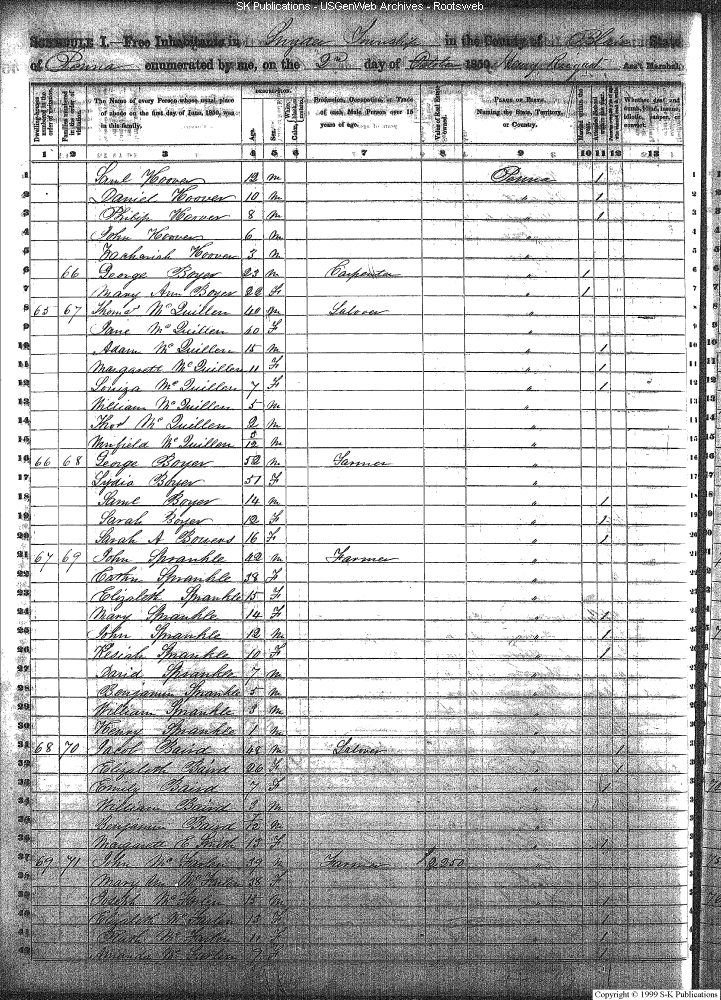 SK Publications - USGenWeb Archives - Rootsweb
SCHEDULE I.—Free Inhabitants in Snyder Township in the County of Blair State
of Penna enumerated by me, on the 2nd day of October 1850. Ass't Marshal.
DESCRIPTION.
Dwelling-houses numbered in the order of visitation. Families numbered in the order of visitation. The Name of every Person whose usual place of abode on the first day of June, 1850, was in this family. Age. Sex. Profession, Occupation, or Trade of each Male Person over 15 years of age. Value of Real Estate owned. PLACE OF BIRTH. Naming the State, Territory, or Country. Whether deaf and dumb, blind, insane, idiotic, pauper, or convict.
1 2 3 4 5 6 7 8 9 10 11 12 13
1 Saml Hoover 12 M Penna 1 1
2 Daniel Hoover 10 M " 1 2
3 Philip Hoover 8 M " 1 3
4 John Hoover 6 M " 4
5 Zachariah Hoover 3 M " 5
6 66 George Boyer 23 M Carpenter " 1 6
7 Mary Ann Boyer 22 F " 1 7
8 65 67 Thomas McQuillen 40 M Labover " 8
9 Jane McQuillen 40 F " 9
10 Adam McQuillen 15 M " 1 10
11 Margarett McQuillen 11 F " 1 11
12 Louiza McQuillen 7 F " 1 12
13 William McQuillen 5 M " 13
14 Thos McQuillen 2 M " 14
15 Winfield McQuillen /12 M " 15
16 66 68 George Boyer 52 M Farmer " 16
17 Lydia Boyer 51 F " 17
18 Saml Boyer 14 M " 1 18
19 Sarah Boyer 12 F " 1 19
20 Sarah A Bowers 16 F " 1 20
21 67 69 John Sprankle 42 M Farmer " 21
22 Cathn Sprankle 38 F " 22
23 Elizabeth Sprankle 15 F " 23
24 Mary Sprankle 14 F " 1 24
25 John Sprankle 12 M " 1 25
26 Kesiah Sprankle 10 F " 1 26
27 David Sprankle 7 M " 27
28 Benjamin Sprankle 5 M " 28
29 William Sprankle 3 M " 29
30 Henry Sprankle 1 M " 30
31 68 70 Jacob Baird 48 M Labover " 1 31
32 Elizabeth Baird 26 F " 1 32
33 Emily Baird 7 F " 1
34 William Baird 3 M "
35 Benjamin Baird /12 M "
36 Margarett E Smith 13 F " 1
37 69 71 John McFarlen 39 M Farmer $2,250 "
38 Mary Ann McFarlen 38 F "
39 Joseph McFarlen 15 M " 1
40 Elizabeth McFarlen 13 F " 1
41 McFarlen 11 F " 1
42 Amanda McFarlen 9 F " 1
Copyright © 1999 S-K Publications